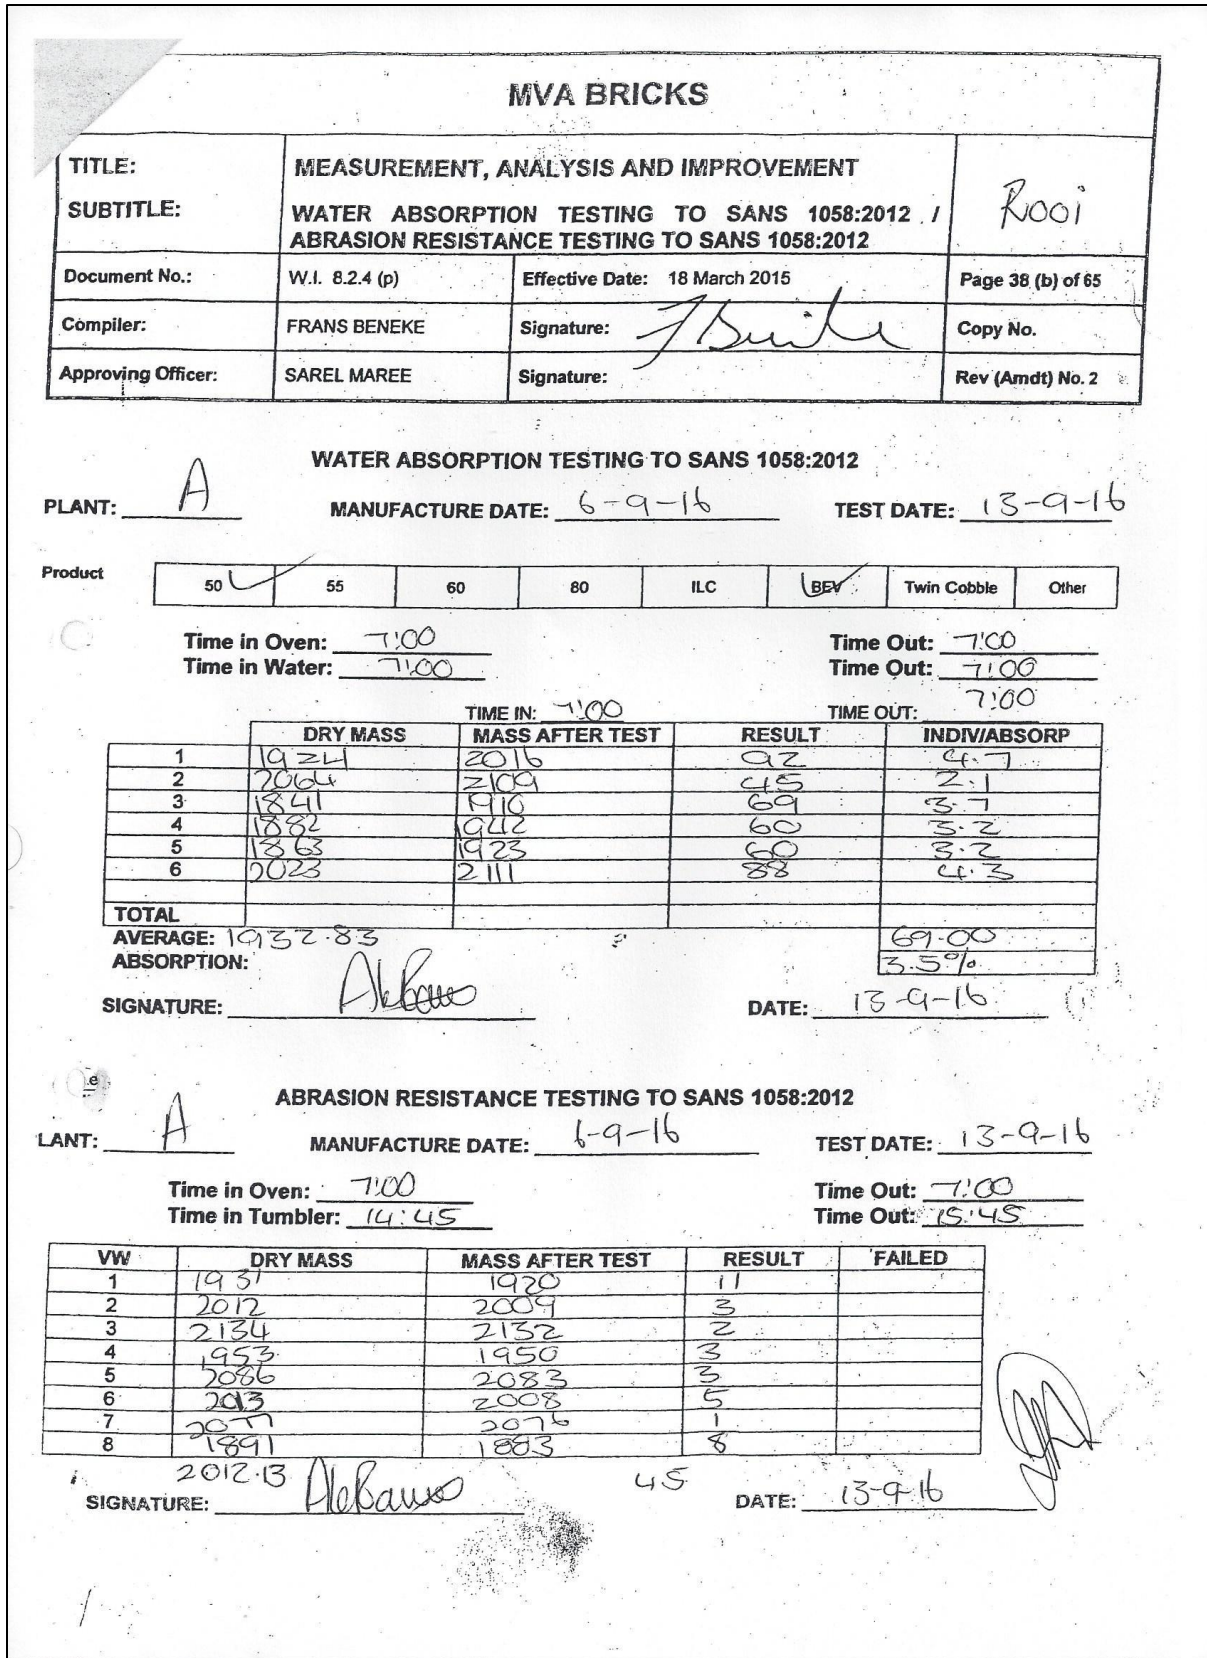 MVA BRICKS
TITLE: MEASUREMENT, ANALYSIS AND IMPROVEMENT
Rooi
SUBTITLE: WATER ABSORPTION TESTING TO SANS 1058:2012 /
ABRASION RESISTANCE TESTING TO SANS 1058:2012
Document No.: W.I. 8.2.4 (p) Effective Date: 18 March 2015 Page 38 (b) of 65
Compiler: FRANS BENEKE Signature: Copy No.
Approving Officer: SAREL MAREE Signature: Rev (Amdt) No. 2
WATER ABSORPTION TESTING TO SANS 1058:2012
PLANT: A MANUFACTURE DATE: 6-9-16 TEST DATE: 13-9-16
Product 50 55 60 80 ILC BEV Twin Cobble Other
Time in Oven: 7:00 Time Out: 7:00
Time in Water: 7:00 Time Out: 7:00
TIME IN: 7:00 TIME OUT: 7:00
DRY MASS MASS AFTER TEST RESULT INDIV/ABSORP
1 1924 2016 92 4.7
2 2064 2109 45 2.1
3 1841 1910 69 3.7
4 1882 1942 60 3.2
5 1863 1923 60 3.2
6 2023 2111 88 4.3
TOTAL
AVERAGE: 1932.83 69.00
ABSORPTION: 3.5%
SIGNATURE: DATE: 13-9-16
.e
ABRASION RESISTANCE TESTING TO SANS 1058:2012
LANT: A MANUFACTURE DATE: 6-9-16 TEST DATE: 13-9-16
Time in Oven: 7:00 Time Out: 7:00
Time in Tumbler: 14:45 Time Out: 15:45
VW DRY MASS MASS AFTER TEST RESULT FAILED
1 1931 1920 11
2 2012 2009 3
3 2134 2132 2
4 1953 1950 3
5 2086 2083 3
6 2013 2008 5
7 2077 2076 1
8 1891 1883 8
2012.13 45
SIGNATURE: DATE: 13-9-16